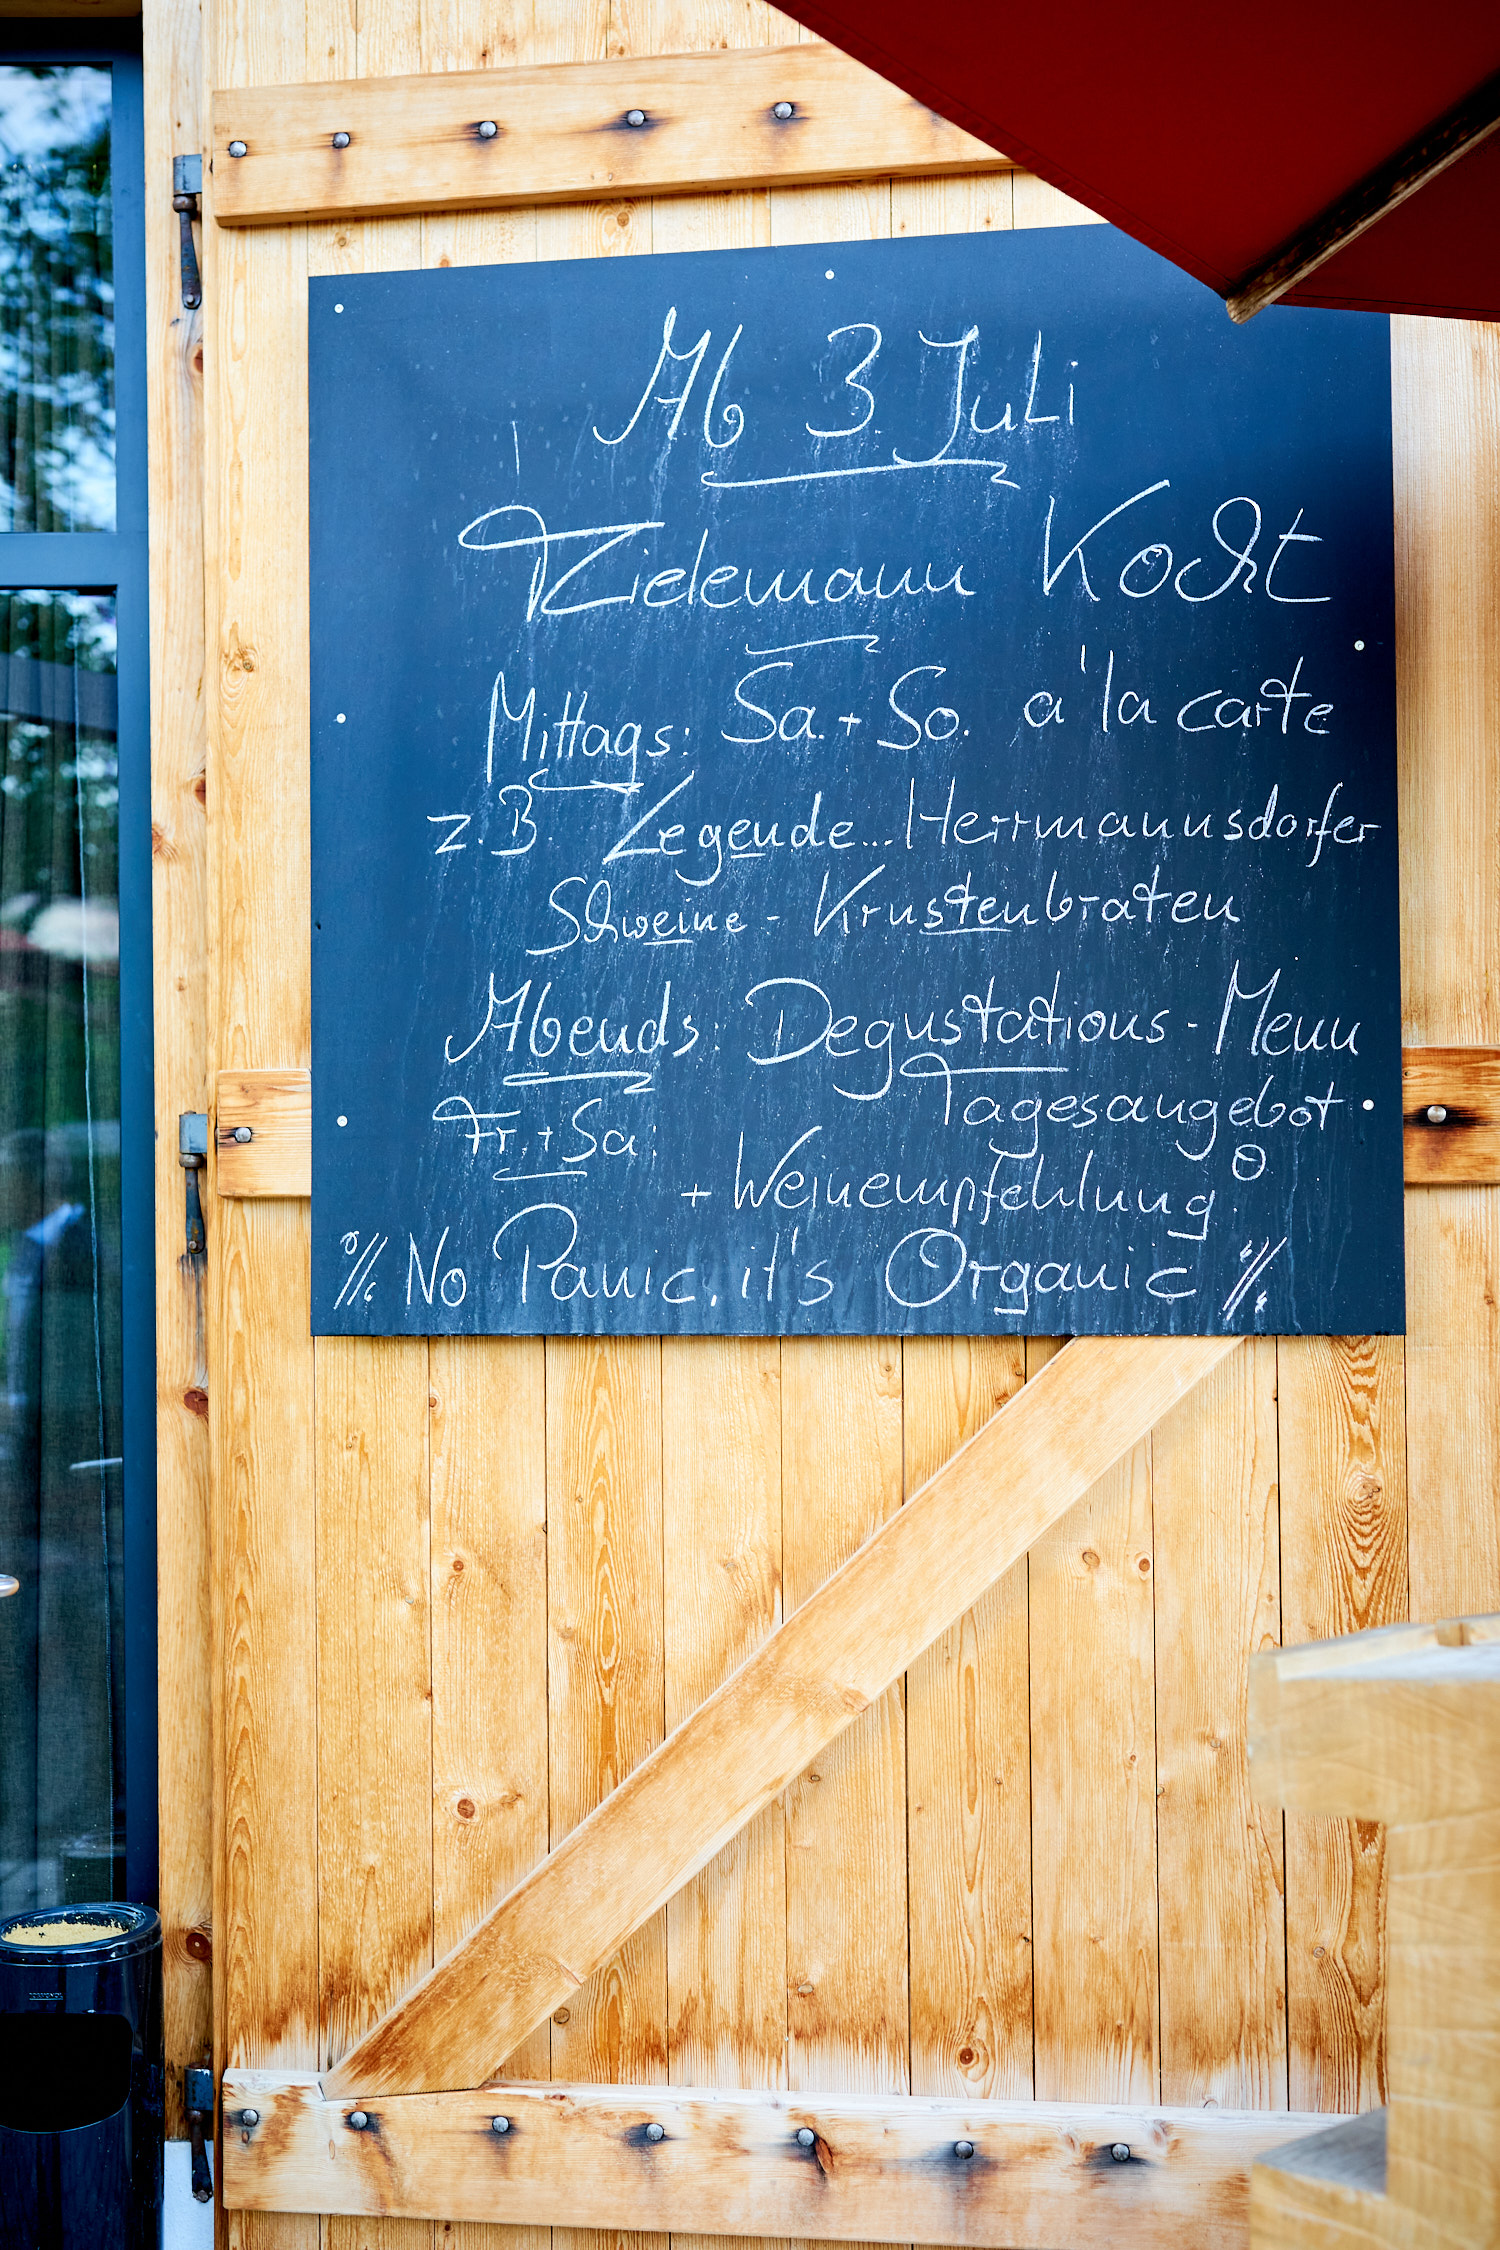 Ab 3. Juli
Tzielemann Kocht
Mittags: Sa. + So. a 'la carte
z.B. Legende... Herrmannsdorfer
Schweine - Krustenbraten
Abends: Degustations - Menu
Fr. + Sa: Tagesangebot
+ Weinempfehlung.
% No Panic, it's Organic %